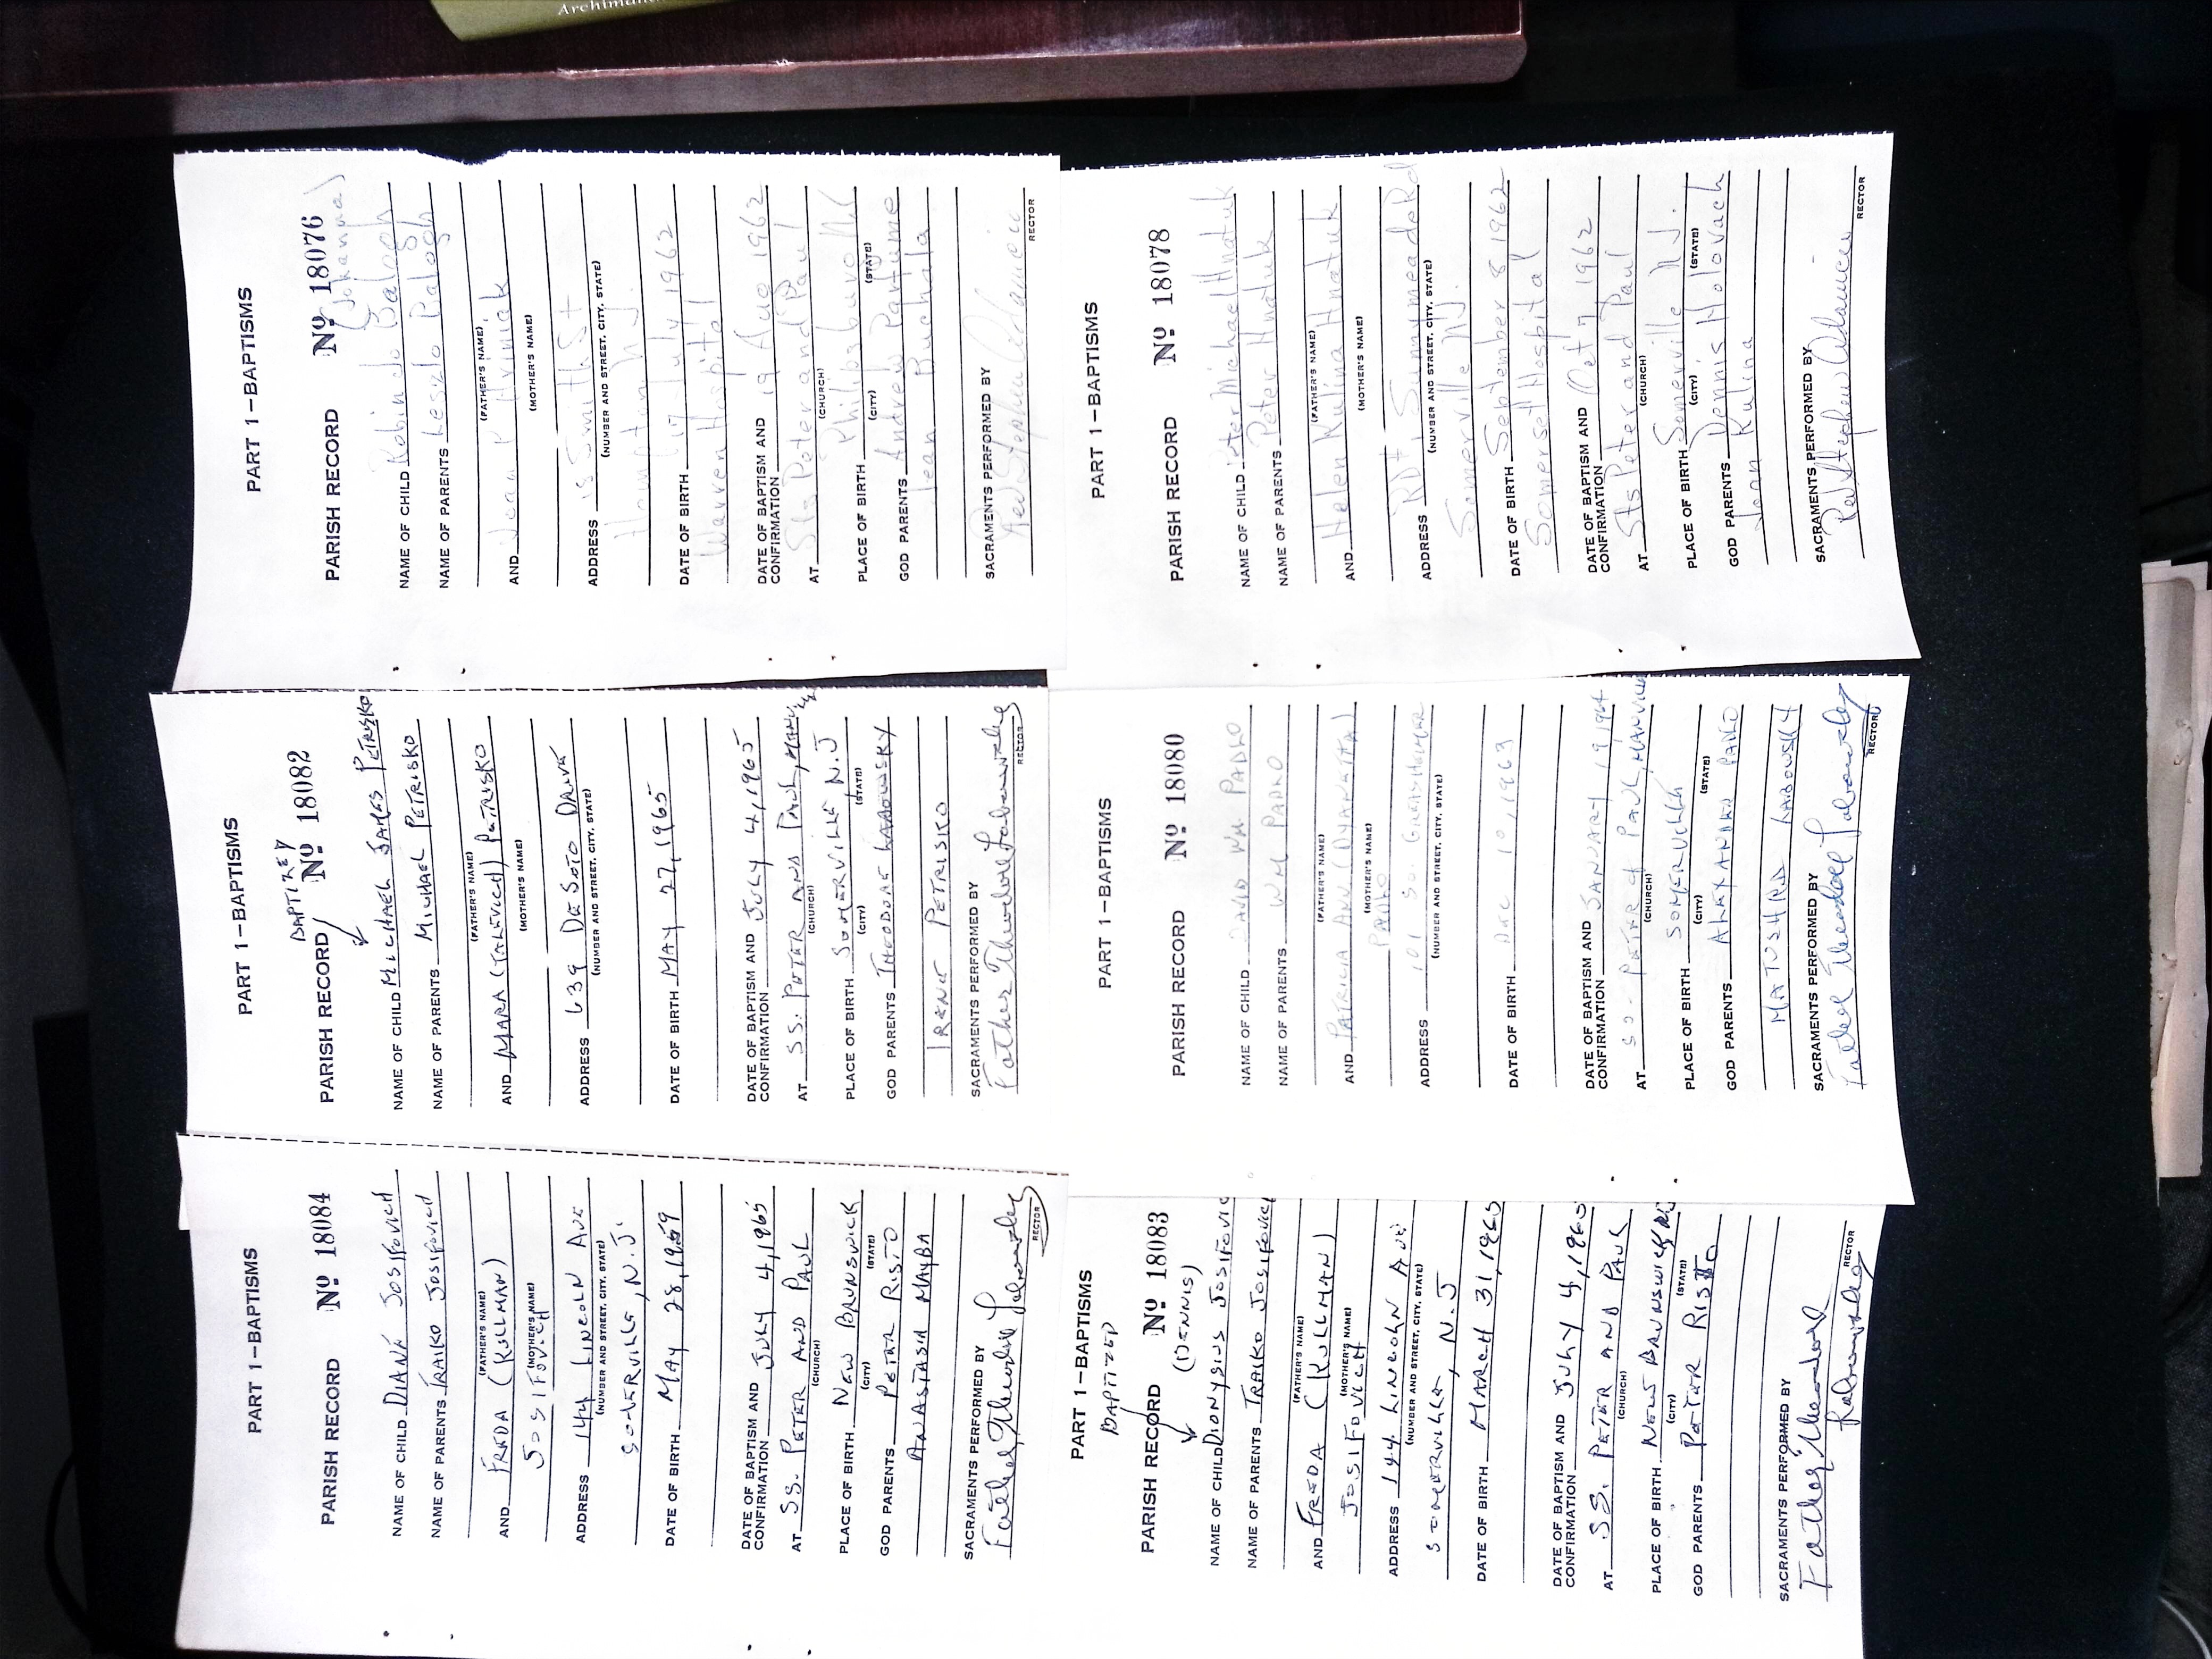 PART 1—BAPTISMS
PARISH RECORD Nº 18084
NAME OF CHILD DIANE JOSIFOVICH
NAME OF PARENTS TRAIKO JOSIFOVICH
(FATHER'S NAME)
AND FREDA (KULLMAN)
(MOTHER'S NAME)
JOSIFOVICH
ADDRESS 144 LINCOLN AVE
(NUMBER AND STREET, CITY, STATE)
SOMERVILLE, N.J.
DATE OF BIRTH MAY 28, 1959
DATE OF BAPTISM AND
CONFIRMATION JULY 4, 1965
AT SS. PETER AND PAUL
(CHURCH)
PLACE OF BIRTH NEW BRUNSWICK
(CITY) (STATE)
GOD PARENTS PETER RISTO
ANASTASIA MAYBA
SACRAMENTS PERFORMED BY
Father Theodore Labowsky
RECTOR
PART 1—BAPTISMS
BAPTIZED
PARISH RECORD Nº 18082
NAME OF CHILD MICHAEL JAMES PETRISKO
NAME OF PARENTS MICHAEL PETRISKO
(FATHER'S NAME)
AND MARA (TALEVICH) PETRISKO
(MOTHER'S NAME)
ADDRESS 639 DE SOTO DRIVE
(NUMBER AND STREET, CITY, STATE)
DATE OF BIRTH MAY 27, 1965
DATE OF BAPTISM AND
CONFIRMATION JULY 4, 1965
AT SS. PETER AND PAUL,
(CHURCH)
PLACE OF BIRTH SOMERVILLE, N.J
(CITY) (STATE)
GOD PARENTS THEODORE LABOWSKY
IRENE PETRISKO
SACRAMENTS PERFORMED BY
Father Theodore Labowsky
RECTOR
PART 1—BAPTISMS
PARISH RECORD Nº 18076
(Johanna)
NAME OF CHILD Robin Jo Balogh
NAME OF PARENTS Leszlo Balogh
(FATHER'S NAME)
AND Joan P Hriniak
(MOTHER'S NAME)
ADDRESS 18 Smith St
(NUMBER AND STREET, CITY, STATE)
Hampton N.J.
DATE OF BIRTH 17 July 1962
Warren Hospital
DATE OF BAPTISM AND
CONFIRMATION 19 Aug 1962
AT Sts Peter and Paul
(CHURCH)
PLACE OF BIRTH Philipsburg N.J.
(CITY) (STATE)
GOD PARENTS Andrew Parfume
Jean Buchala
SACRAMENTS PERFORMED BY
Rev Stephen
RECTOR
PART 1—BAPTISMS
BAPTIZED
PARISH RECORD Nº 18083
(DENNIS)
NAME OF CHILD DIONYSIUS JOSIFOVIC
NAME OF PARENTS TRAIKO JOSIFOVICH
(FATHER'S NAME)
AND FREDA (KULLMAN)
(MOTHER'S NAME)
JOSIFOVICH
ADDRESS 144 LINCOLN AVE
(NUMBER AND STREET, CITY, STATE)
SOMERVILLE, N.J
DATE OF BIRTH MARCH 31, 1965
DATE OF BAPTISM AND
CONFIRMATION JULY 4, 1965
AT SS. PETER AND PAUL
(CHURCH)
PLACE OF BIRTH NEW BRUNSWICK
(CITY) (STATE)
GOD PARENTS PETER RISTO
SACRAMENTS PERFORMED BY
Father Theodore
Labowsky
RECTOR
PART 1—BAPTISMS
PARISH RECORD Nº 18080
NAME OF CHILD DAVID WM. PADLO
NAME OF PARENTS WM PADLO
(FATHER'S NAME)
AND PATRICIA ANN
(MOTHER'S NAME)
PADLO
ADDRESS 101 SO.
(NUMBER AND STREET, CITY, STATE)
DATE OF BIRTH DEC 10, 1963
DATE OF BAPTISM AND
CONFIRMATION JANUARY 19, 1964
AT SS. PETER & PAUL, MANVILLE
(CHURCH)
PLACE OF BIRTH SOMERVILLE
(CITY) (STATE)
GOD PARENTS ALEXANDER PADLO
MATUSHKA LABOWSKY
SACRAMENTS PERFORMED BY
Father Theodore Labowsky
RECTOR
PART 1—BAPTISMS
PARISH RECORD Nº 18078
NAME OF CHILD Peter Michael Hnatuk
NAME OF PARENTS Peter Hnatuk
(FATHER'S NAME)
AND Helen Kulina Hnatuk
(MOTHER'S NAME)
ADDRESS RD#1 Sunnymeade Rd
(NUMBER AND STREET, CITY, STATE)
Somerville N.J.
DATE OF BIRTH September 8, 1962
Somerset Hospital
DATE OF BAPTISM AND
CONFIRMATION Oct 7, 1962
AT Sts Peter and Paul
(CHURCH)
PLACE OF BIRTH Somerville N J.
(CITY) (STATE)
GOD PARENTS Dennis Holovach
Joan Kulina
SACRAMENTS PERFORMED BY
Rev Stephen
RECTOR